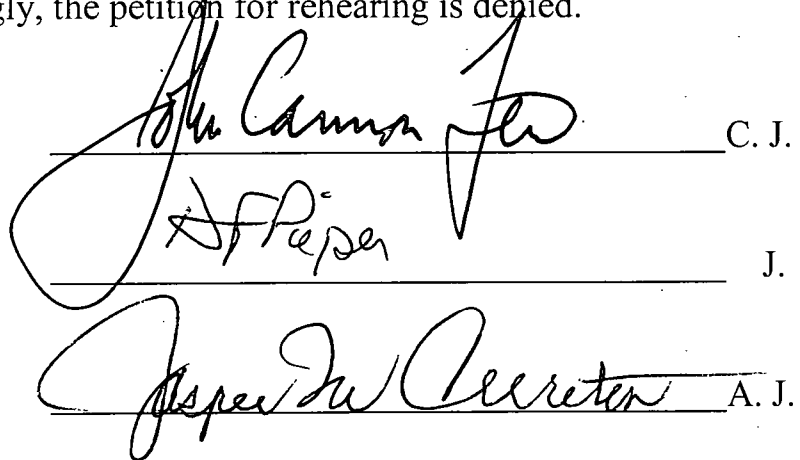 gly, the petition for rehearing is denied.
John Cannon Few C. J.
D F Pieper J.
Jasper M Cureton A. J.